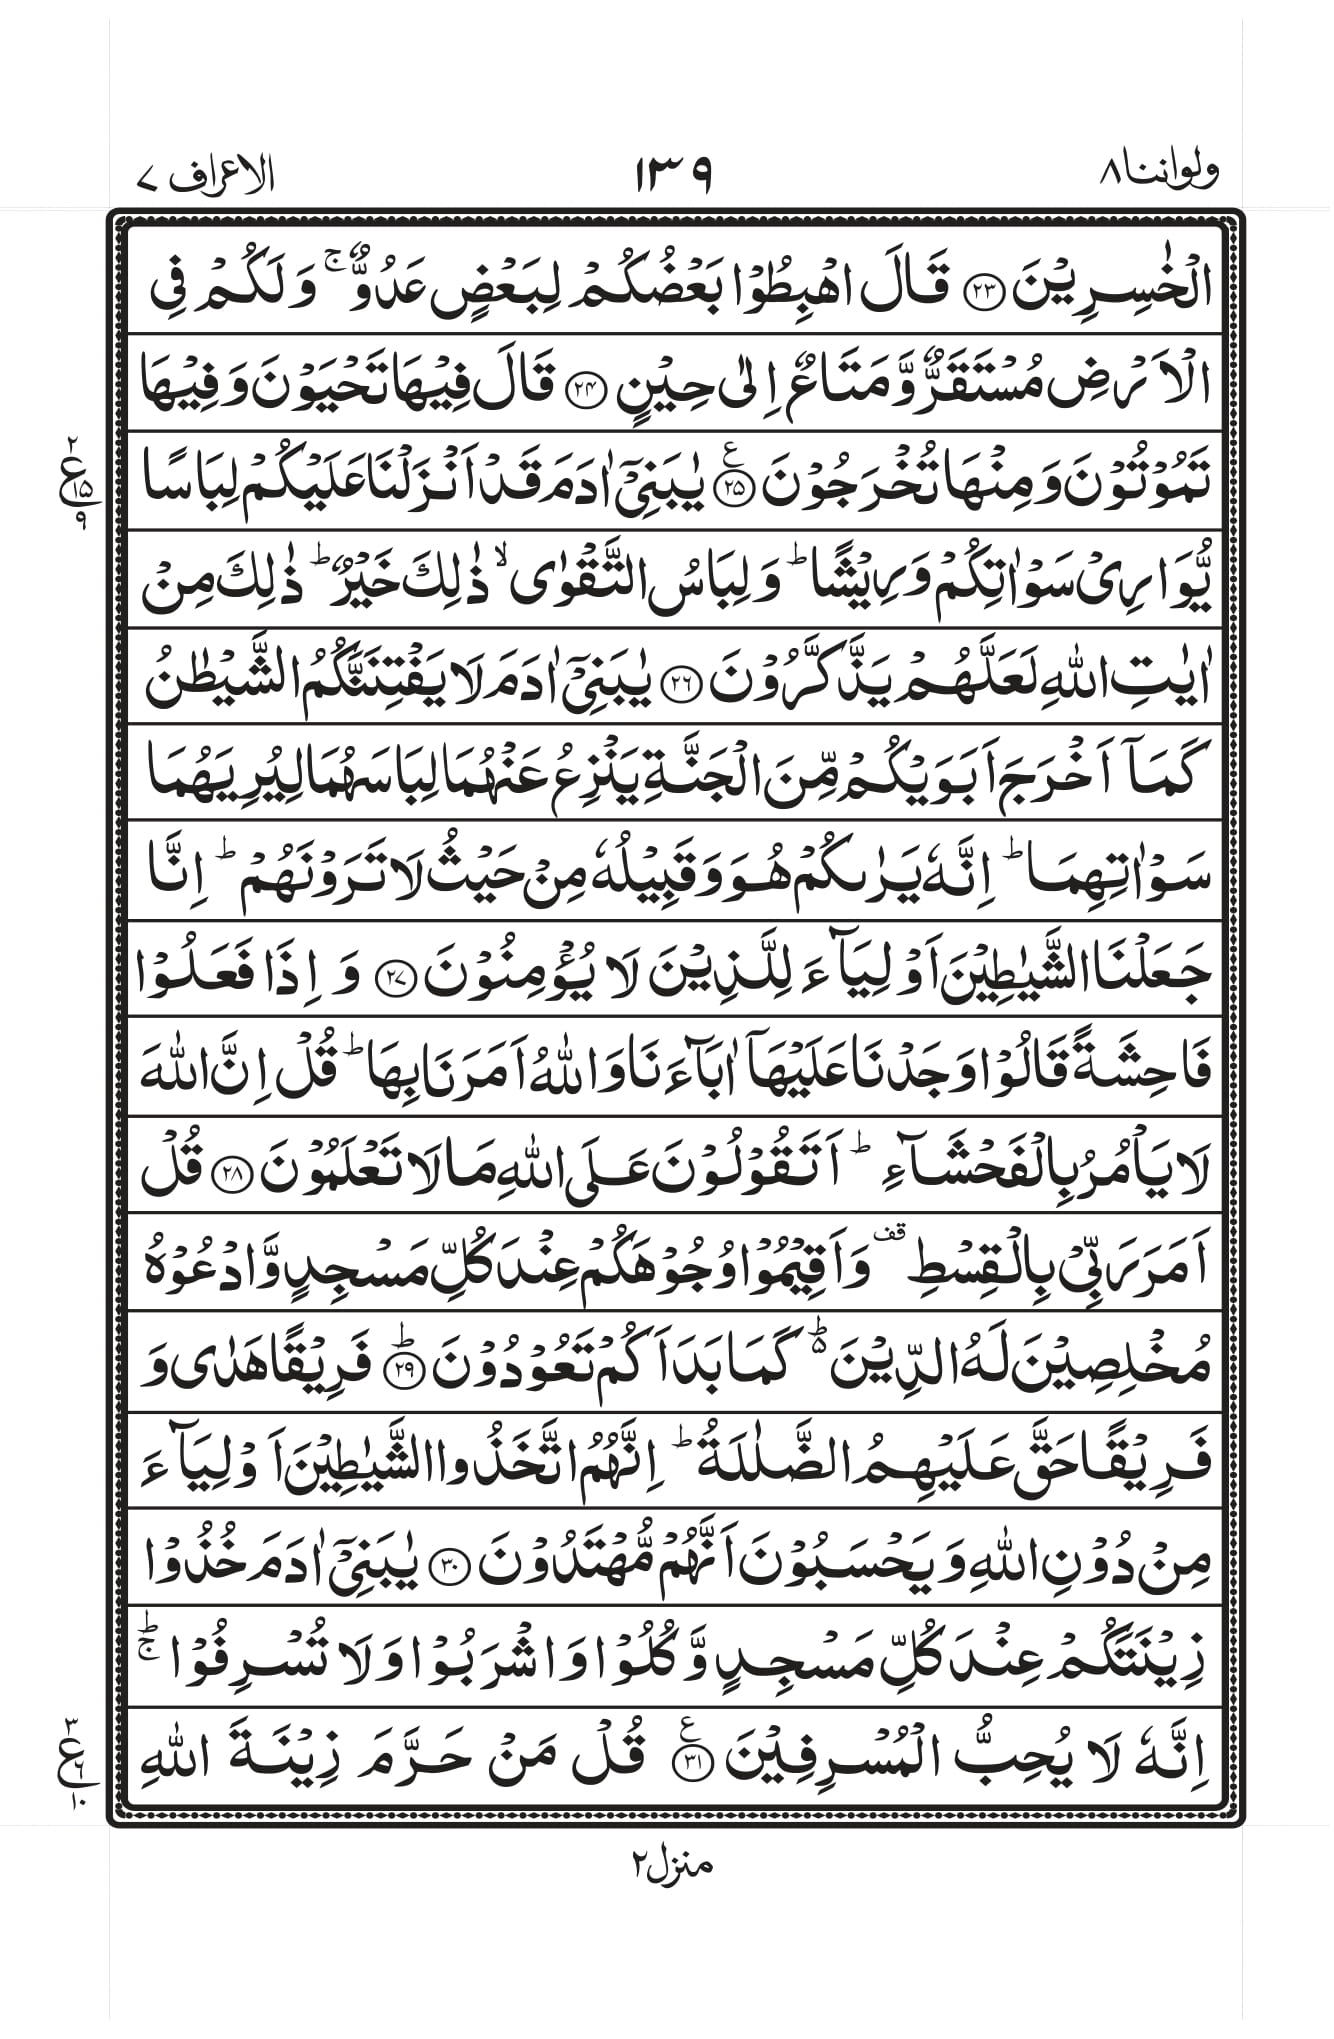 ولواننا ٨
١٣٩
الاعراف ٧
الْخٰسِرِیْنَ ﴿۲۳﴾ قَالَ اهْبِطُوْا بَعْضُكُمْ لِبَعْضٍ عَدُوٌّ ۚ وَ لَكُمْ فِی
الْاَرْضِ مُسْتَقَرٌّ وَّ مَتَاعٌ اِلٰی حِیْنٍ ﴿۲۴﴾ قَالَ فِیْهَا تَحْیَوْنَ وَ فِیْهَا
تَمُوْتُوْنَ وَ مِنْهَا تُخْرَجُوْنَ ﴿۲۵﴾ع یٰبَنِیْۤ اٰدَمَ قَدْ اَنْزَلْنَا عَلَیْكُمْ لِبَاسًا
٢ ع ١٥ ٩
یُّوَارِیْ سَوْاٰتِكُمْ وَ رِیْشًا ؕ وَ لِبَاسُ التَّقْوٰی ۙ ذٰلِكَ خَیْرٌ ؕ ذٰلِكَ مِنْ
اٰیٰتِ اللّٰهِ لَعَلَّهُمْ یَذَّكَّرُوْنَ ﴿۲۶﴾ یٰبَنِیْۤ اٰدَمَ لَا یَفْتِنَنَّكُمُ الشَّیْطٰنُ
كَمَاۤ اَخْرَجَ اَبَوَیْكُمْ مِّنَ الْجَنَّةِ یَنْزِعُ عَنْهُمَا لِبَاسَهُمَا لِیُرِیَهُمَا
سَوْاٰتِهِمَا ؕ اِنَّهٗ یَرٰىكُمْ هُوَ وَ قَبِیْلُهٗ مِنْ حَیْثُ لَا تَرَوْنَهُمْ ؕ اِنَّا
جَعَلْنَا الشَّیٰطِیْنَ اَوْلِیَآءَ لِلَّذِیْنَ لَا یُؤْمِنُوْنَ ﴿۲۷﴾ وَ اِذَا فَعَلُوْا
فَاحِشَةً قَالُوْا وَجَدْنَا عَلَیْهَاۤ اٰبَآءَنَا وَ اللّٰهُ اَمَرَنَا بِهَا ؕ قُلْ اِنَّ اللّٰهَ
لَا یَاْمُرُ بِالْفَحْشَآءِ ؕ اَتَقُوْلُوْنَ عَلَی اللّٰهِ مَا لَا تَعْلَمُوْنَ ﴿۲۸﴾ قُلْ
اَمَرَ رَبِّیْ بِالْقِسْطِ قف وَ اَقِیْمُوْا وُجُوْهَكُمْ عِنْدَ كُلِّ مَسْجِدٍ وَّ ادْعُوْهُ
مُخْلِصِیْنَ لَهُ الدِّیْنَ ۬ؕ كَمَا بَدَاَكُمْ تَعُوْدُوْنَ ﴿۲۹﴾ؕ فَرِیْقًا هَدٰی وَ
فَرِیْقًا حَقَّ عَلَیْهِمُ الضَّلٰلَةُ ؕ اِنَّهُمُ اتَّخَذُوا الشَّیٰطِیْنَ اَوْلِیَآءَ
مِنْ دُوْنِ اللّٰهِ وَ یَحْسَبُوْنَ اَنَّهُمْ مُّهْتَدُوْنَ ﴿۳۰﴾ یٰبَنِیْۤ اٰدَمَ خُذُوْا
زِیْنَتَكُمْ عِنْدَ كُلِّ مَسْجِدٍ وَّ كُلُوْا وَ اشْرَبُوْا وَ لَا تُسْرِفُوْا ۚؕ
اِنَّهٗ لَا یُحِبُّ الْمُسْرِفِیْنَ ﴿۳۱﴾ع قُلْ مَنْ حَرَّمَ زِیْنَةَ اللّٰهِ
٣ ع ٦ ١٠
منزل ٢